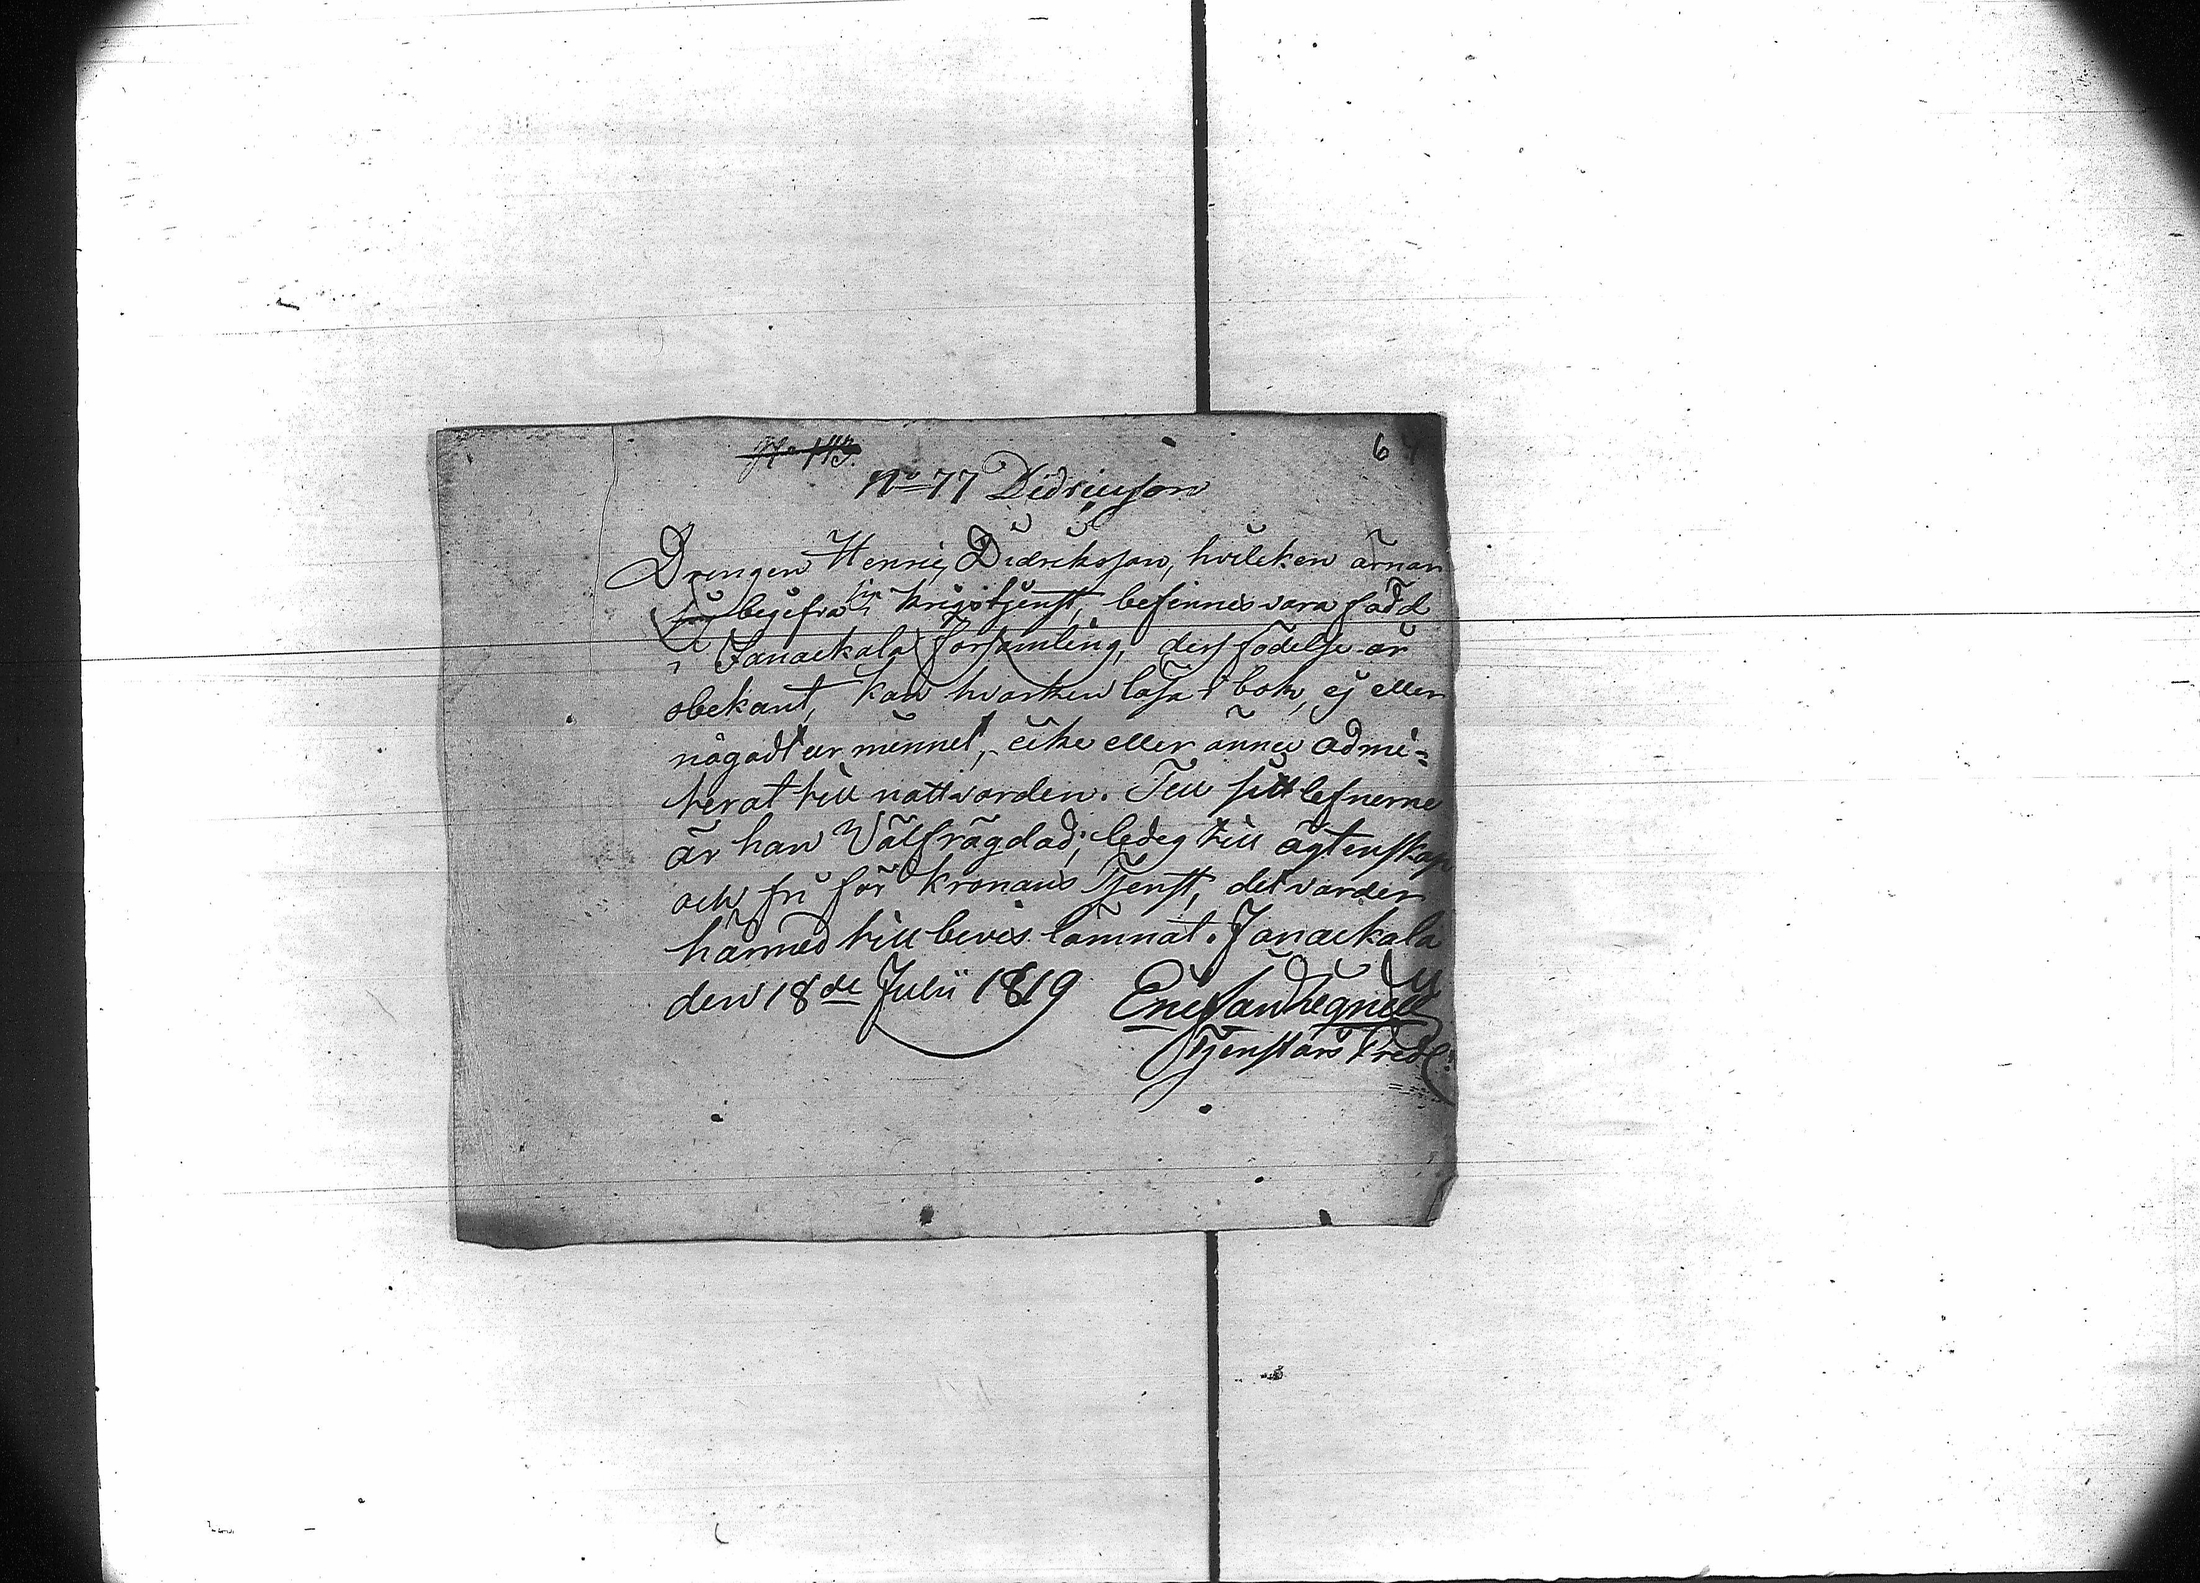 64
No 113.
No 77 Didricsson
Drengen Henric Didriksson, hvilken ärnar
sig begifva sig i Krigstjenst, befinnes vara född
i Janackala församling, dess födelse år
obekant, kan hvarken läsa i bok, ej eller
någodt ur minnet, icke eller ännu admi=
terat till nattvarden. Till sitt lefnerne
är han Välfrägdad; ledeg till ägtenskap
och fri för Kronans Tjenst, det varder
härmed till bevis lämnat. Janackala
den 18de Julii 1819
Tjenstörs Pred: